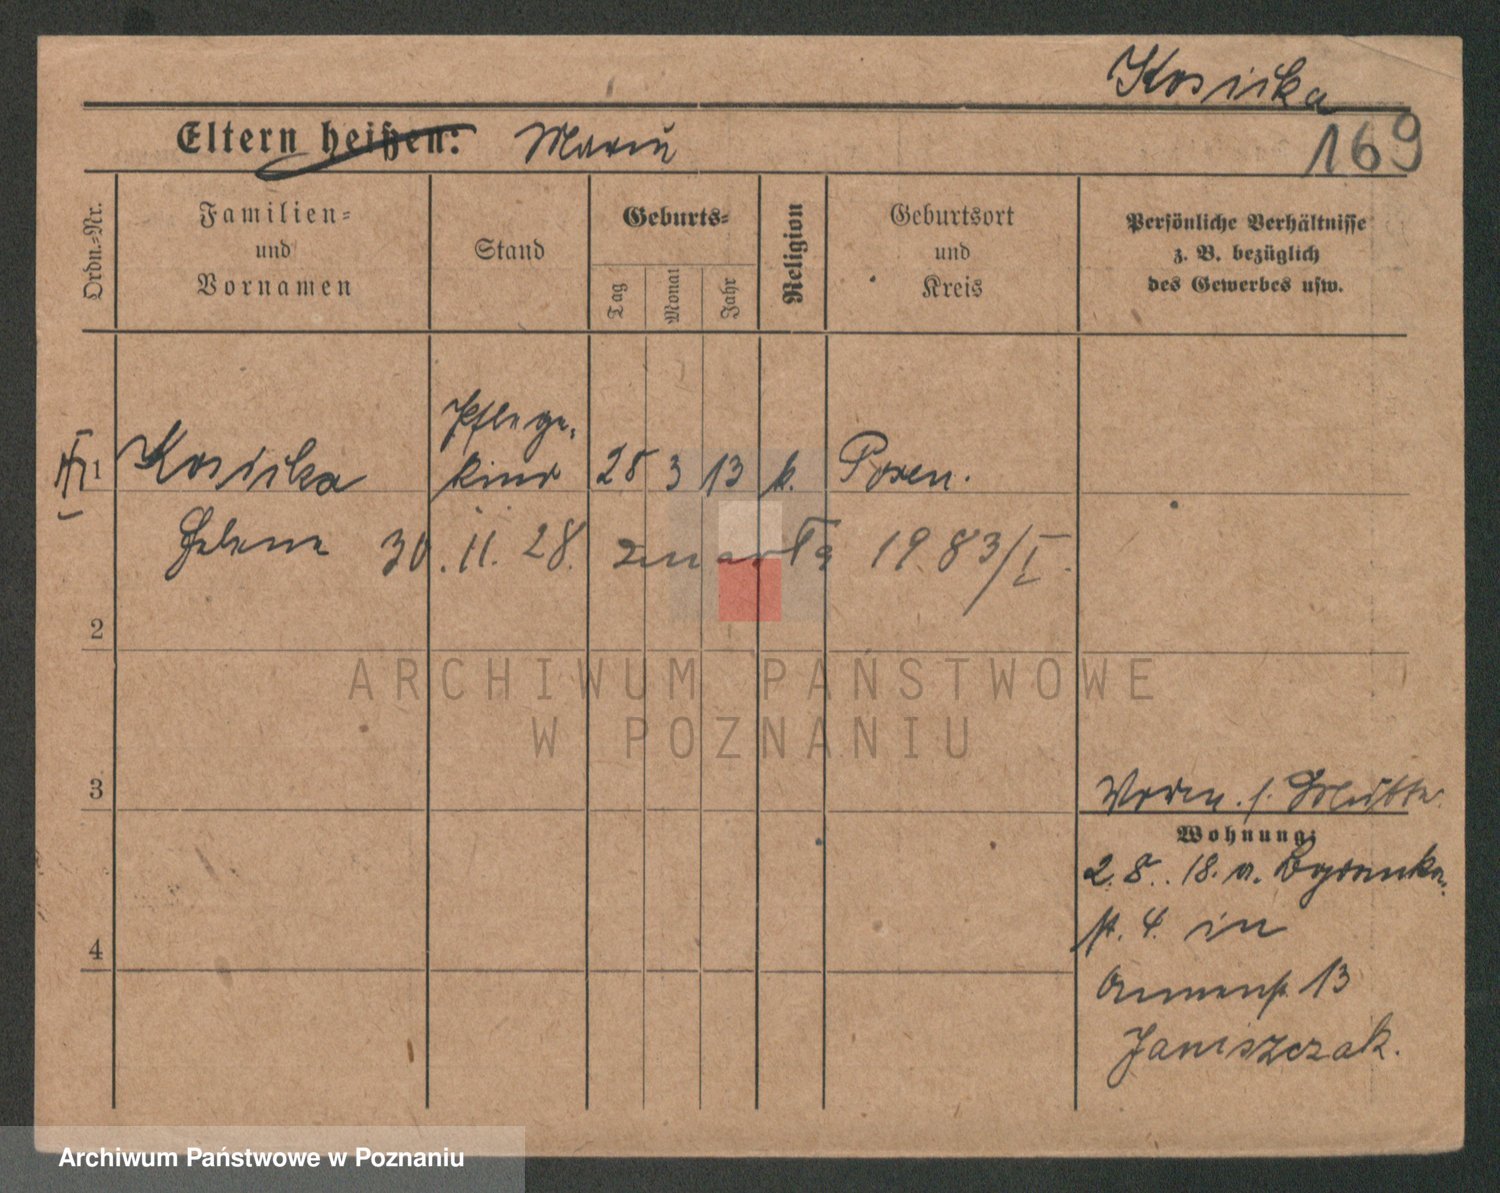 Kosicka
Eltern heißen: Maria
169
Ordn.-Nr.
Familien-
und
Vornamen
Stand
Geburts-
Tag
Monat
Jahr
Religion
Geburtsort
und
Kreis
Persönliche Verhältnisse
z. B. bezüglich
des Gewerbes usw.
Pflege-
1 Kosicka kind 28 3 13 k. Posen.
Helene 30.11.28. zmarła 1983/I.
2
3
4
Wohnung:
2.8.18. a.
st. 4. in
13
Janiszczak.
ARCHIWUM PAŃSTWOWE
W POZNANIU
Archiwum Państwowe w Poznaniu